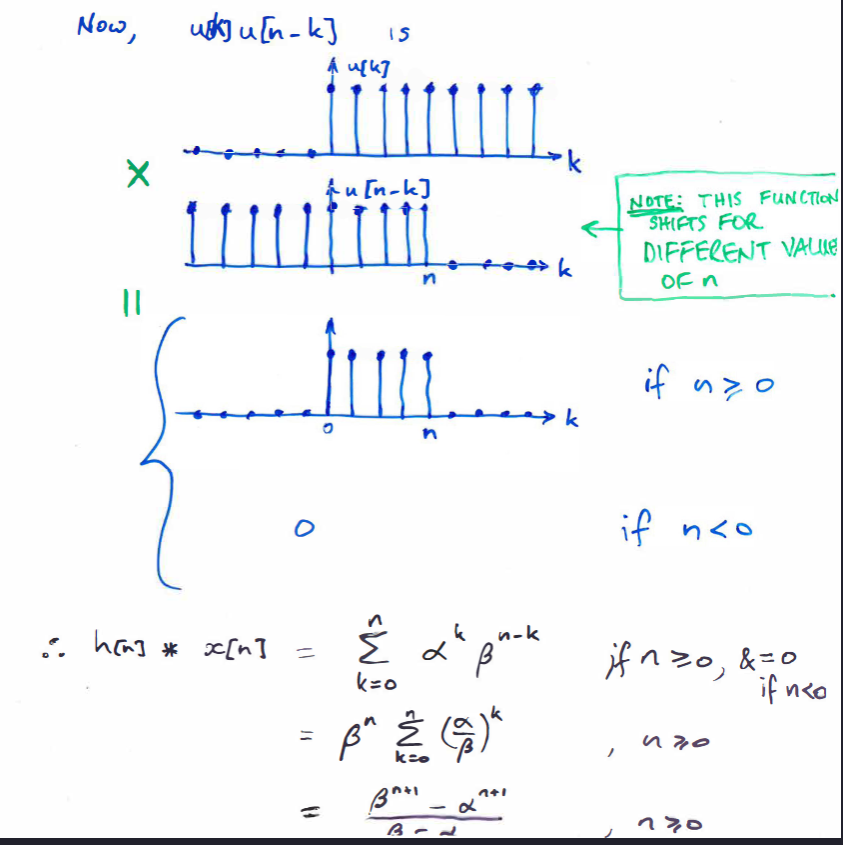 Now, u[k] u[n-k] is
u[k]
k
×
u[n-k]
n
k
NOTE: THIS FUNCTION
SHIFTS FOR
DIFFERENT VALUE
OF n
||
0
n
k
if n ≥ 0
0
if n < 0
∴ h[n] * x[n] = ∑_{k=0}^{n} α^k β^{n-k} if n ≥ 0, & = 0
if n<0
= β^n ∑_{k=0}^{n} (α/β)^k , n ≥ 0
= (β^{n+1} - α^{n+1})/(β - α) , n ≥ 0